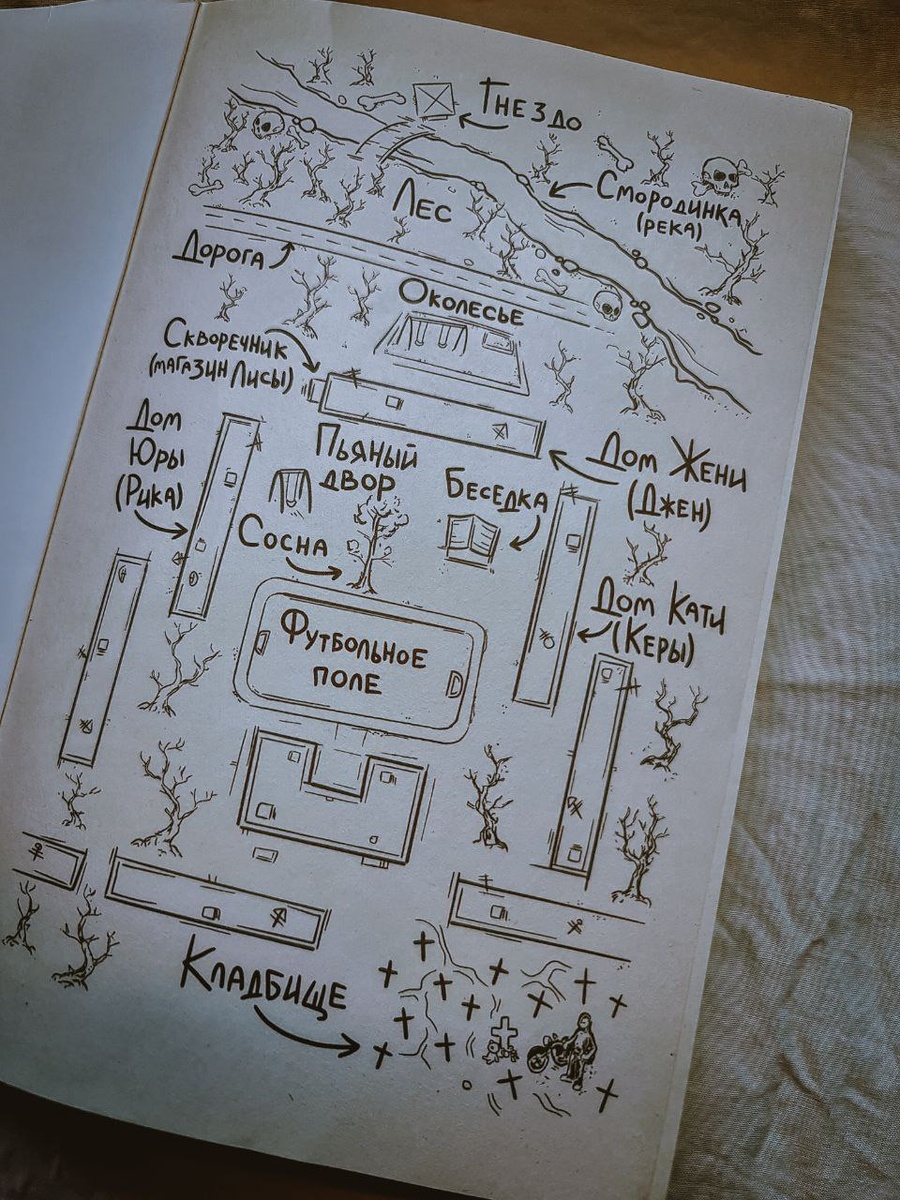 Гнездо
Смородинка
(река)
Лес
Дорога
Околесье
Скворечник
(магазин Лисы)
Дом
Юры
(Рика)
Пьяный
двор
Беседка
Дом Жени
(Джен)
Сосна
Дом Кати
(Керы)
Футбольное
поле
Кладбище